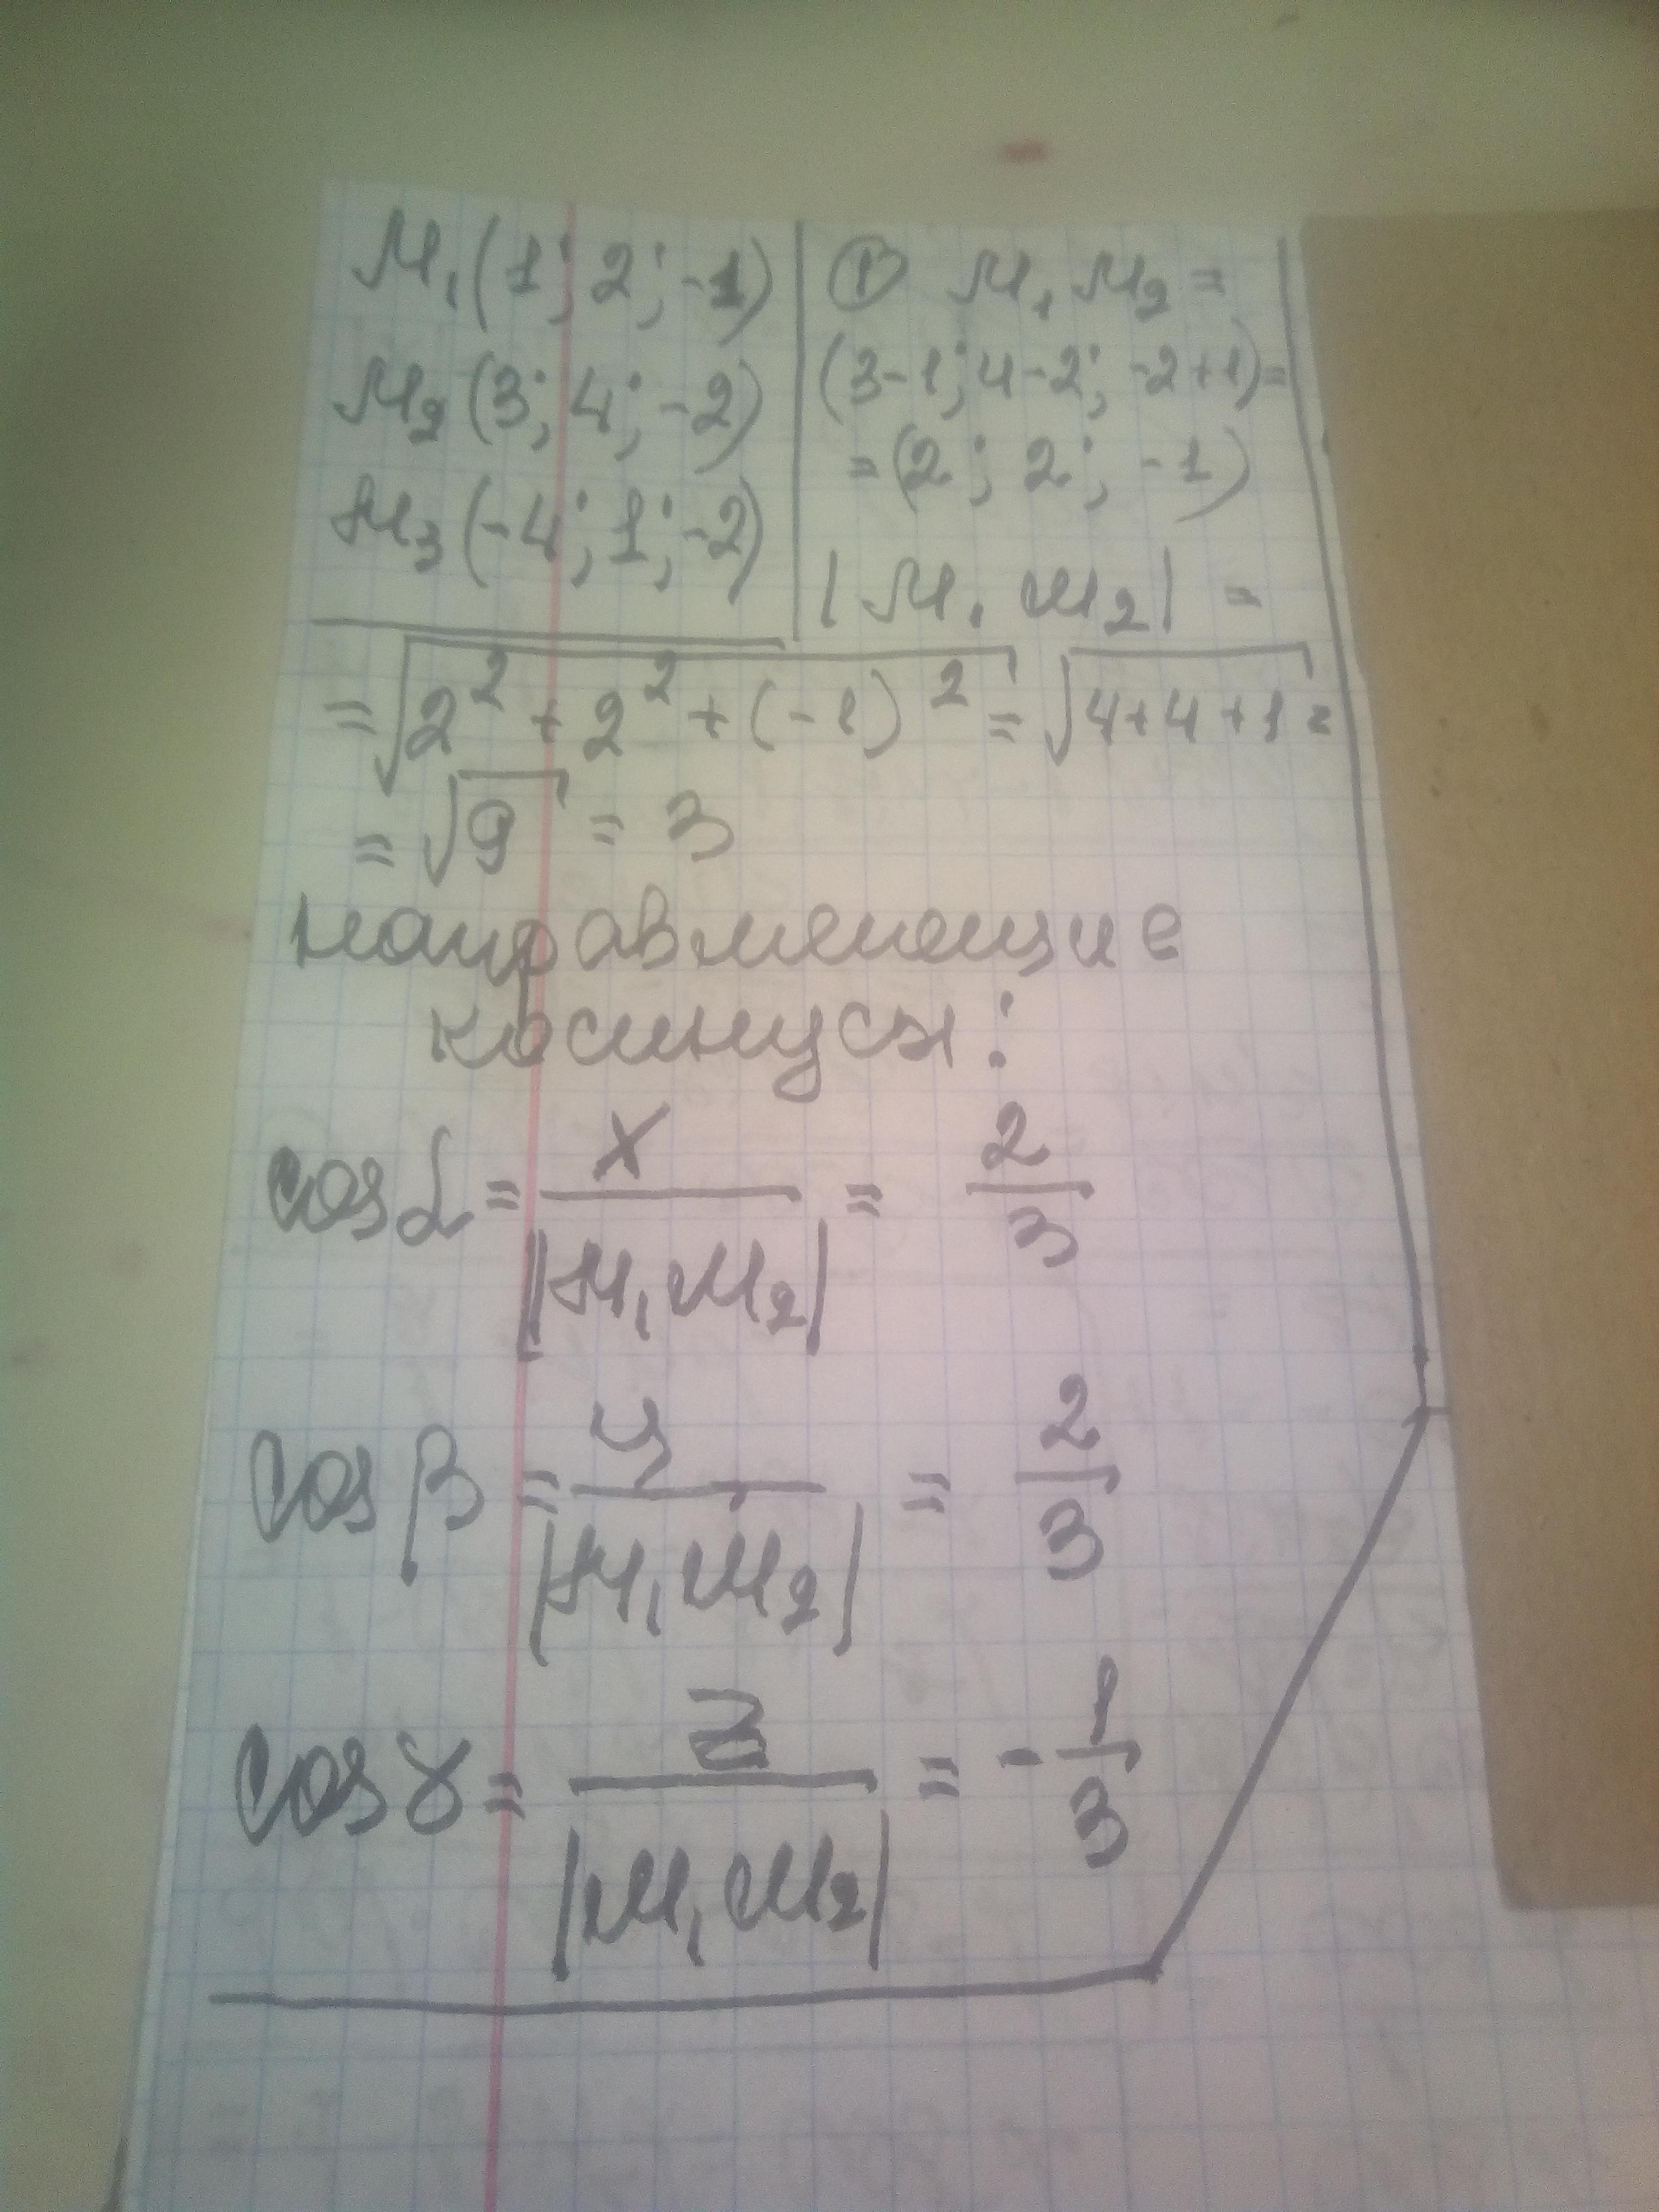 M₁(1; 2; -1)
M₂(3; 4; -2)
M₃(-4; 1; -2)
① M₁M₂ =
(3-1; 4-2; -2+1) =
= (2; 2; -1)
|M₁M₂| =
= √(2² + 2² + (-1)²) = √(4+4+1) =
= √9 = 3
направляющие
косинусы:
cos α = x/|M₁M₂| = 2/3
cos β = y/|M₁M₂| = 2/3
cos γ = z/|M₁M₂| = -1/3